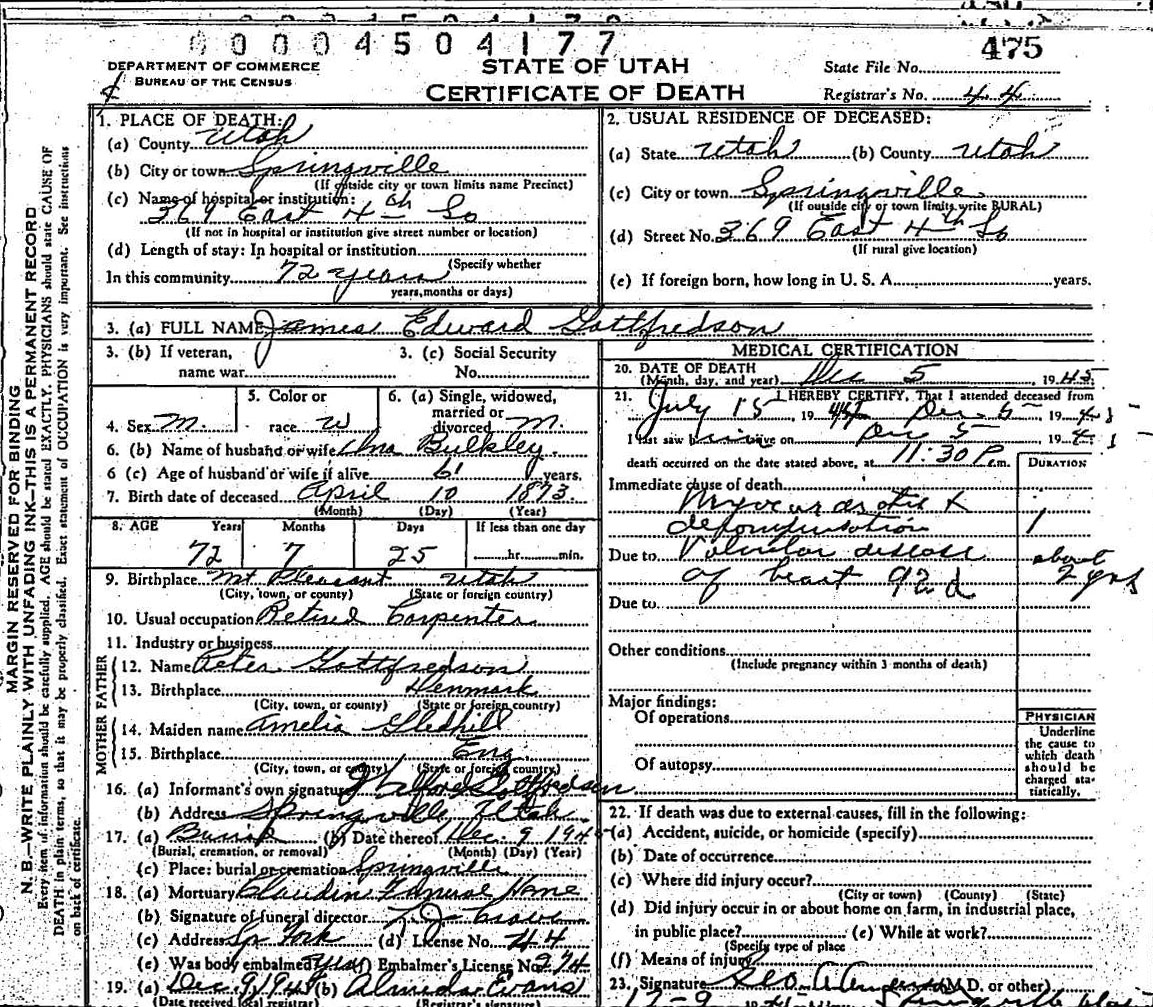 0 0 0 0 4 5 0 4 1 7 7
475
DEPARTMENT OF COMMERCE
BUREAU OF THE CENSUS
STATE OF UTAH
CERTIFICATE OF DEATH
State File No.
Registrar's No. 44
1. PLACE OF DEATH:
(a) County Utah
(b) City or town Springville
(If outside city or town limits name Precinct)
(c) Name of hospital or institution:
369 East 4th So
(If not in hospital or institution give street number or location)
(d) Length of stay: In hospital or institution
(Specify whether
In this community 72 years
years, months or days)
2. USUAL RESIDENCE OF DECEASED:
(a) State Utah (b) County Utah
(c) City or town Springville
(If outside city or town limits write RURAL)
(d) Street No. 369 East 4th So
(If rural give location)
(e) If foreign born, how long in U. S. A. years.
3. (a) FULL NAME James Edward Gottfredson
3. (b) If veteran,
name war
3. (c) Social Security
No.
4. Sex M.
5. Color or
race W
6. (a) Single, widowed,
married or
divorced M.
6. (b) Name of husband or wife Bulkley
6 (c) Age of husband or wife if alive 61 years.
7. Birth date of deceased April 10 1873
(Month) (Day) (Year)
8. AGE Years Months Days If less than one day
72 7 25 hr. min.
9. Birthplace Mt Pleasant Utah
(City, town, or county) (State or foreign country)
10. Usual occupation Retired Carpenter
11. Industry or business
FATHER
12. Name Peter Gottfredson
13. Birthplace Denmark
(City, town, or county) (State or foreign country)
MOTHER
14. Maiden name Amelia Gledhill
15. Birthplace Eng.
(City, town, or county) (State or foreign country)
16. (a) Informant's own signature Gottfredson
(b) Address Springville Utah
17. (a) Burial (b) Date thereof Dec. 9 194
(Burial, cremation, or removal) (Month) (Day) (Year)
(c) Place: burial or cremation Springville
18. (a) Mortuary Claudin Funeral Home
(b) Signature of funeral director
(c) Address Sp York (d) License No. 44
(e) Was body embalmed? yes (f) Embalmer's License No. 274
19. (a) Dec 9 194 (b) Almeda Evans
(Date received local registrar) (Registrar's signature)
MEDICAL CERTIFICATION
20. DATE OF DEATH
(Month, day, and year) Dec 5, 1945
21. I HEREBY CERTIFY, That I attended deceased from
July 15, 1945, Dec 5 194
I last saw him alive on Dec 5 194
death occurred on the date stated above, at 11:30 P.m.
DURATION
Immediate cause of death
Due to Valvular disease about
of heart 92d 2 yrs
Due to
Other conditions
(Include pregnancy within 3 months of death)
Major findings:
Of operations
Of autopsy
PHYSICIAN
Underline
the cause to
which death
should be
charged sta-
tistically.
22. If death was due to external causes, fill in the following:
(a) Accident, suicide, or homicide (specify)
(b) Date of occurrence
(c) Where did injury occur?
(City or town) (County) (State)
(d) Did injury occur in or about home on farm, in industrial place,
in public place? (e) While at work?
(Specify type of place
(f) Means of injury
23. Signature Geo A Anderson (M.D. or other)
MARGIN RESERVED FOR BINDING
N. B.—WRITE PLAINLY WITH UNFADING INK—THIS IS A PERMANENT RECORD
Every item of information should be carefully supplied. AGE should be stated EXACTLY. PHYSICIANS should state CAUSE OF
DEATH in plain terms, so that it may be properly classified. Exact statement of OCCUPATION is very important. See instructions
on back of certificate.